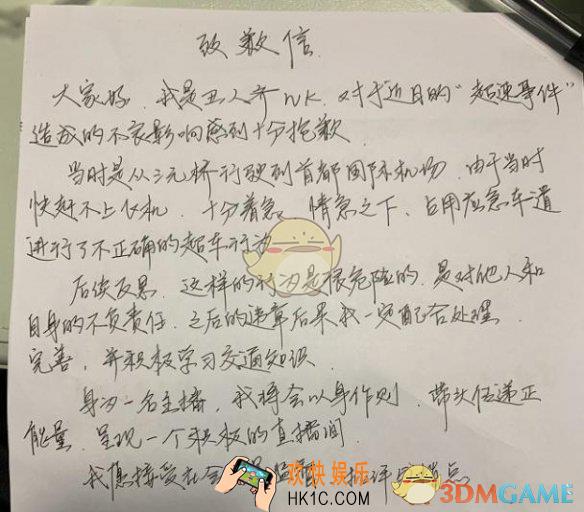 致歉信
大家好，我是丑人齐NK，对于近日的“超速事件”
造成的不良影响感到十分抱歉
当时是从三元桥行驶到首都国际机场，由于当时
快赶不上飞机，十分着急，情急之下，占用应急车道
进行了不正确的超车行为
后续反思，这样的行为是很危险的，是对他人和
自身的不负责任，之后的违章后果我一定配合处理
完善，并积极学习交通知识
身为一名主播，我将会以身作则，带头传递正
能量，呈现一个积极的直播间
我愿接受社会 批评
欢快娱乐
HK1C.COM
3DMGAME